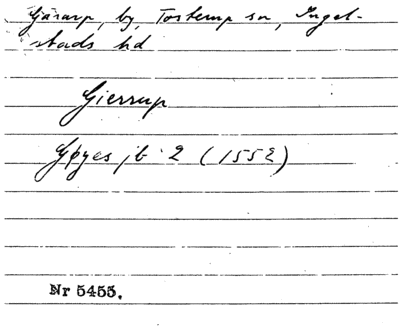 Gärarp, by, Tosterup sn, Ingel-
stads hd
Gierrup
Gøyes jb 2 (1552)
Nr 5455.